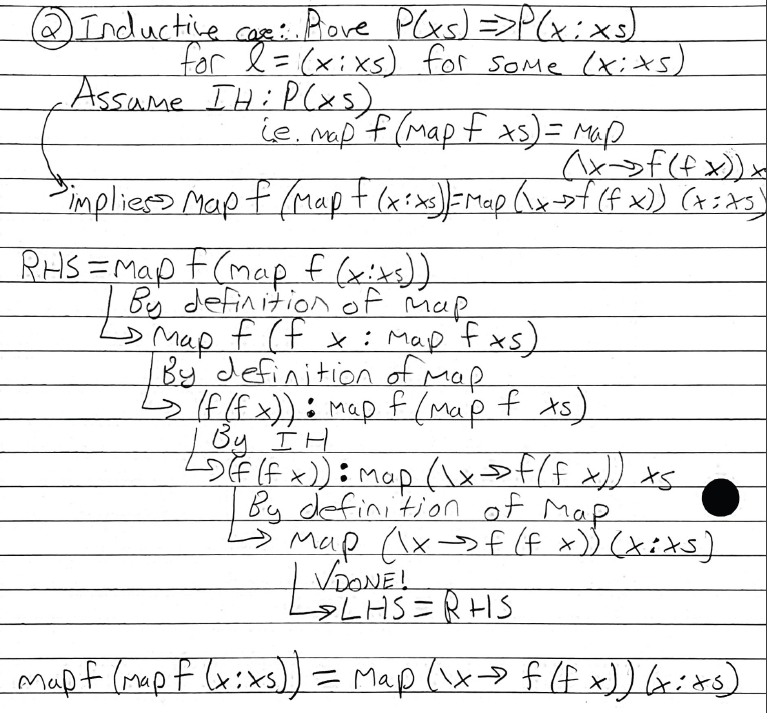 ② Inductive case: Prove P(xs) => P(x:xs)
for l = (x:xs) for some (x:xs)
Assume IH: P(xs)
i.e. map f (map f xs) = map
(\x->f(f x)) x
implies=> map f (map f (x:xs))=map (\x->f(f x)) (x:xs)
RHS = map f(map f (x:xs))
By definition of map
↳ map f (f x : map f xs)
By definition of map
↳ (f(f x)) : map f (map f xs)
By IH
↳ (f(f x)) : map (\x->f(f x)) xs
By definition of map
↳ map (\x->f(f x)) (x:xs)
√DONE!
↳ LHS = RHS
map f (map f (x:xs)) = map (\x-> f(f x)) (x:xs)